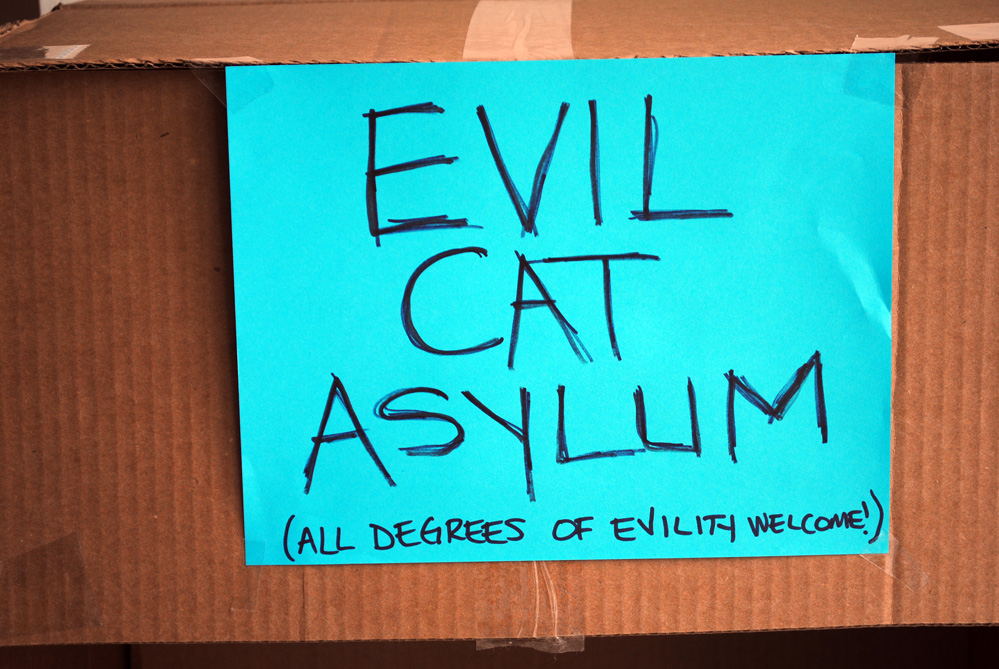 EVIL
CAT
ASYLUM
(ALL DEGREES OF EVILITY WELCOME!)